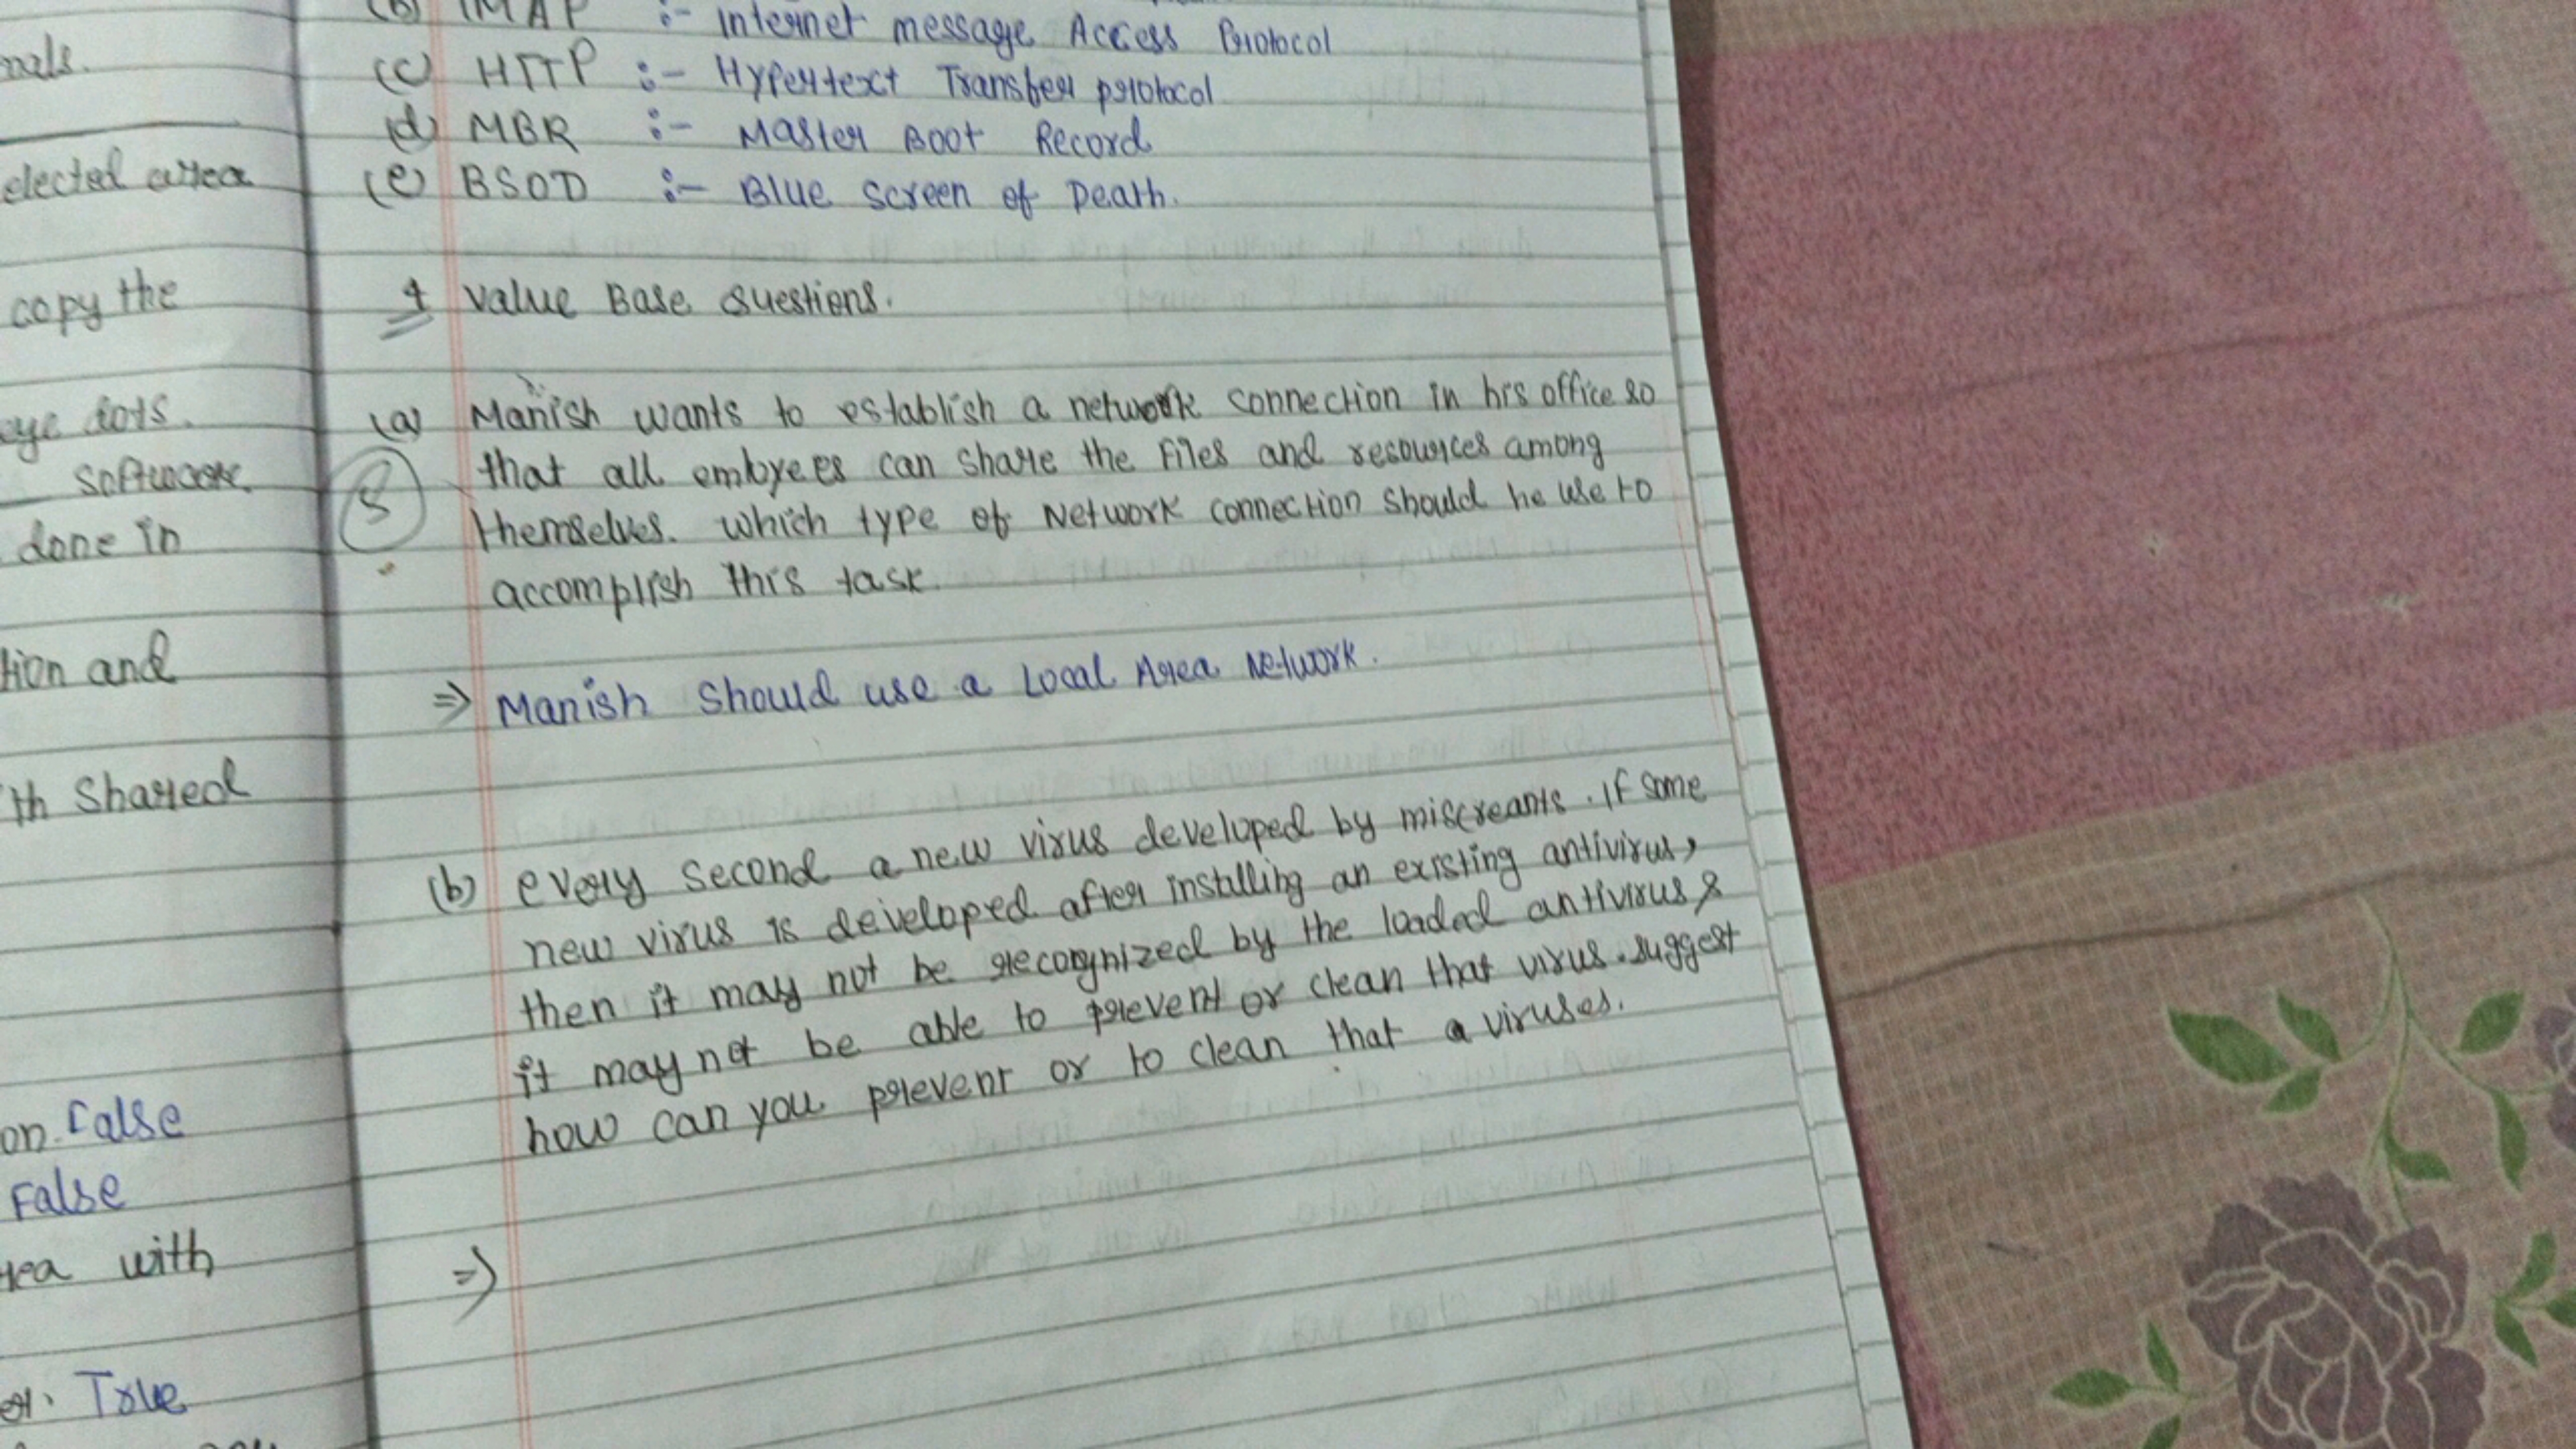 nals.
elected area
copy the
eye dots.
software.
done in
tion and
th Shared
on. False
False
rea with
er. True
(b) IMAP :- Internet message Access Protocol
(c) HTTP :- Hypertext Transfer protocol
(d) MBR :- Master Boot Record
(e) BSOD :- Blue screen of Death.
4 Value Base Questions.
(a) Manish wants to establish a network connection in his office so
that all embyees can share the Files and resources among
themselves. Which type of Network connection should he use to
accomplish this task.
⇒ Manish Should use a Local Area Network.
(b) every second a new virus developed by miscreants. If some
new virus is developed after installing an existing antivirus,
then it may not be recognized by the loaded antivirus &
it may not be able to prevent or clean that virus. suggest
how can you prevent or to clean that a viruses.
⇒